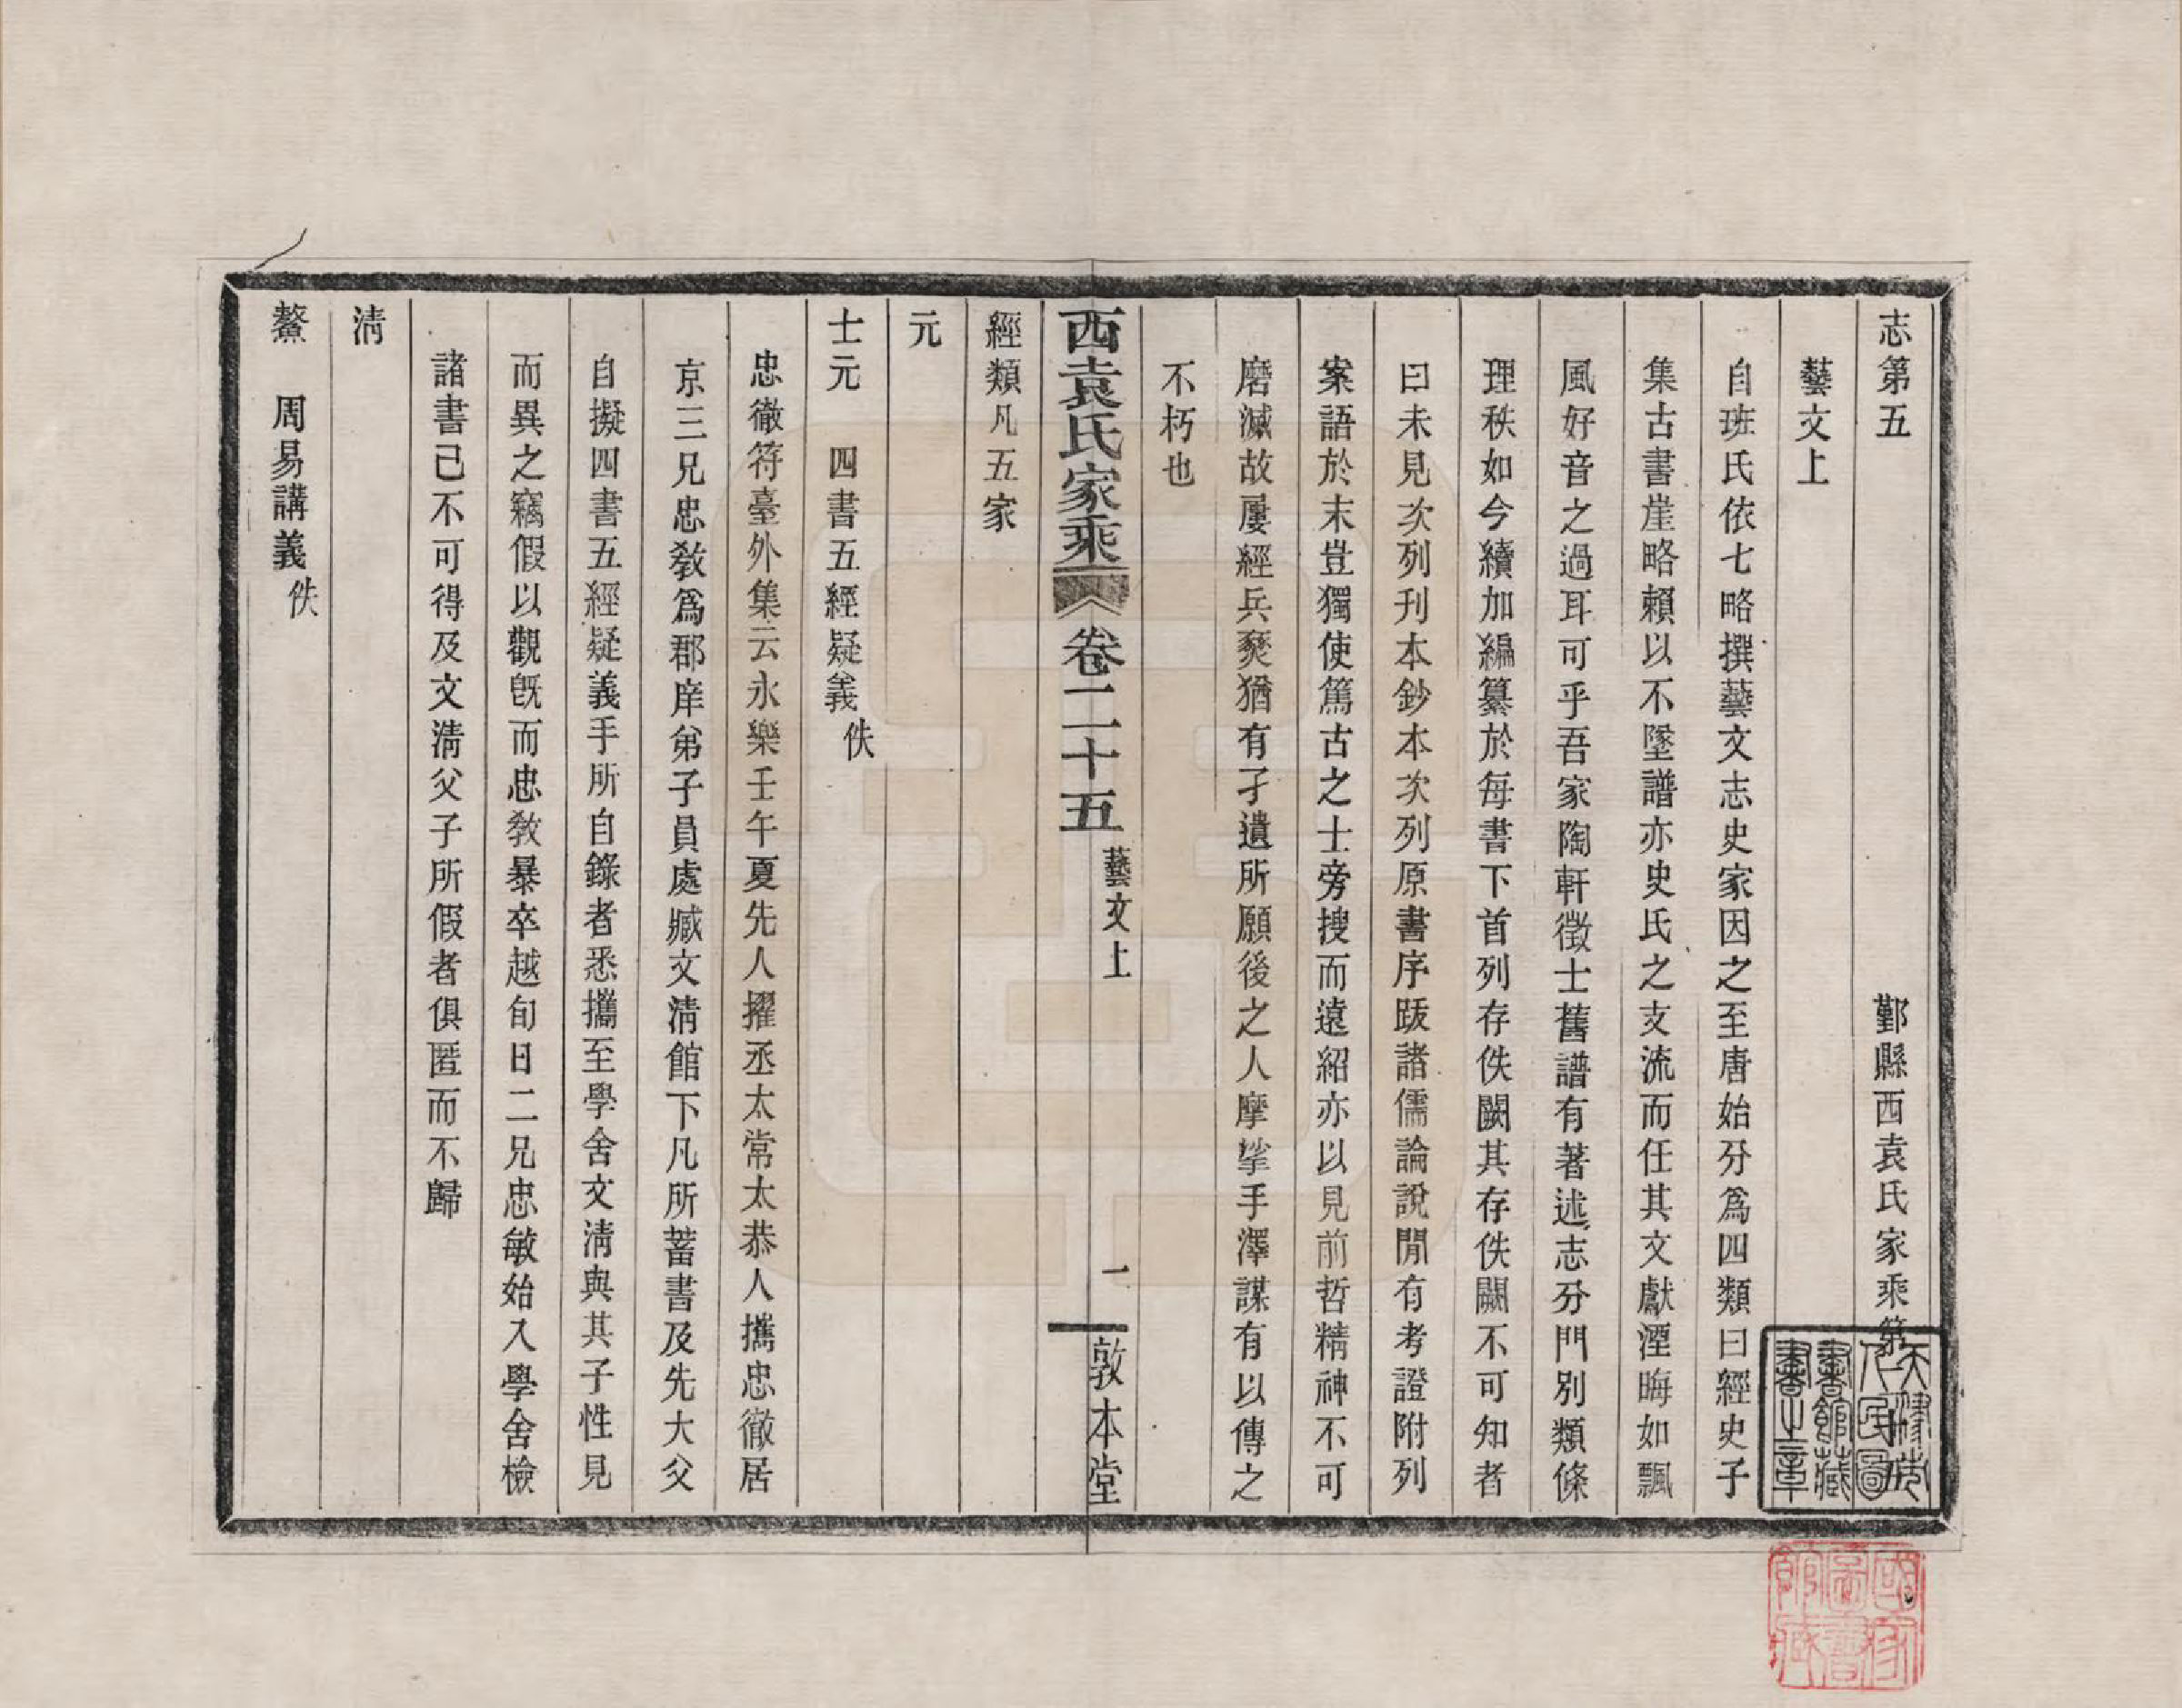 志第五 鄞縣西袁氏家乘第
藝文上
自班氏依七略撰藝文志史家因之至唐始分爲四類曰經史子
集古書崖略賴以不墜譜亦史氏之支流而任其文獻湮晦如飄
風好音之過耳可乎吾家陶軒徵士舊譜有著述志分門別類條
理秩如今續加編纂於每書下首列存佚闕其存佚闕不可知者
曰未見次列刊本鈔本次列原書序跋諸儒論說閒有考證附列
案語於末豈獨使篤古之士旁搜而遠紹亦以見前哲精神不可
磨滅故屢經兵燹猶有孑遺所願後之人摩挲手澤謀有以傳之
不朽也
西袁氏家乘 卷二十五 藝文上 一 敦本堂
經類凡五家
元
士元 四書五經疑義 佚
忠徹符臺外集云永樂壬午夏先人擢丞太常太恭人攜忠徹居
京三兄忠敎爲郡庠弟子員處臧文淸館下凡所蓄書及先大父
自擬四書五經疑義手所自錄者悉攜至學舍文淸與其子性見
而異之竊假以觀旣而忠敎暴卒越旬日二兄忠敏始入學舍檢
諸書已不可得及文淸父子所假者俱匿而不歸
淸
鰲 周易講義 佚
天津市人民圖書館藏書之章
國家圖書館藏